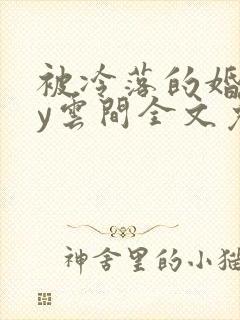 被冷落的婚
y雲間全文
神舍里的小猫